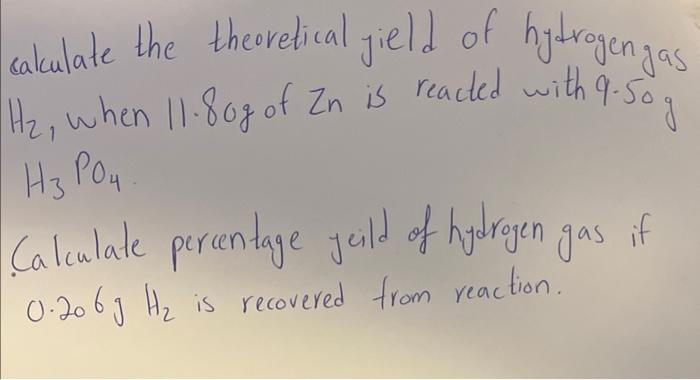 calculate the theoretical yield of hydrogen gas
H₂, when 11.80g of Zn is reacted with 9.50g
H₃PO₄.
Calculate percentage yeild of hydrogen gas if
0.206g H₂ is recovered from reaction.